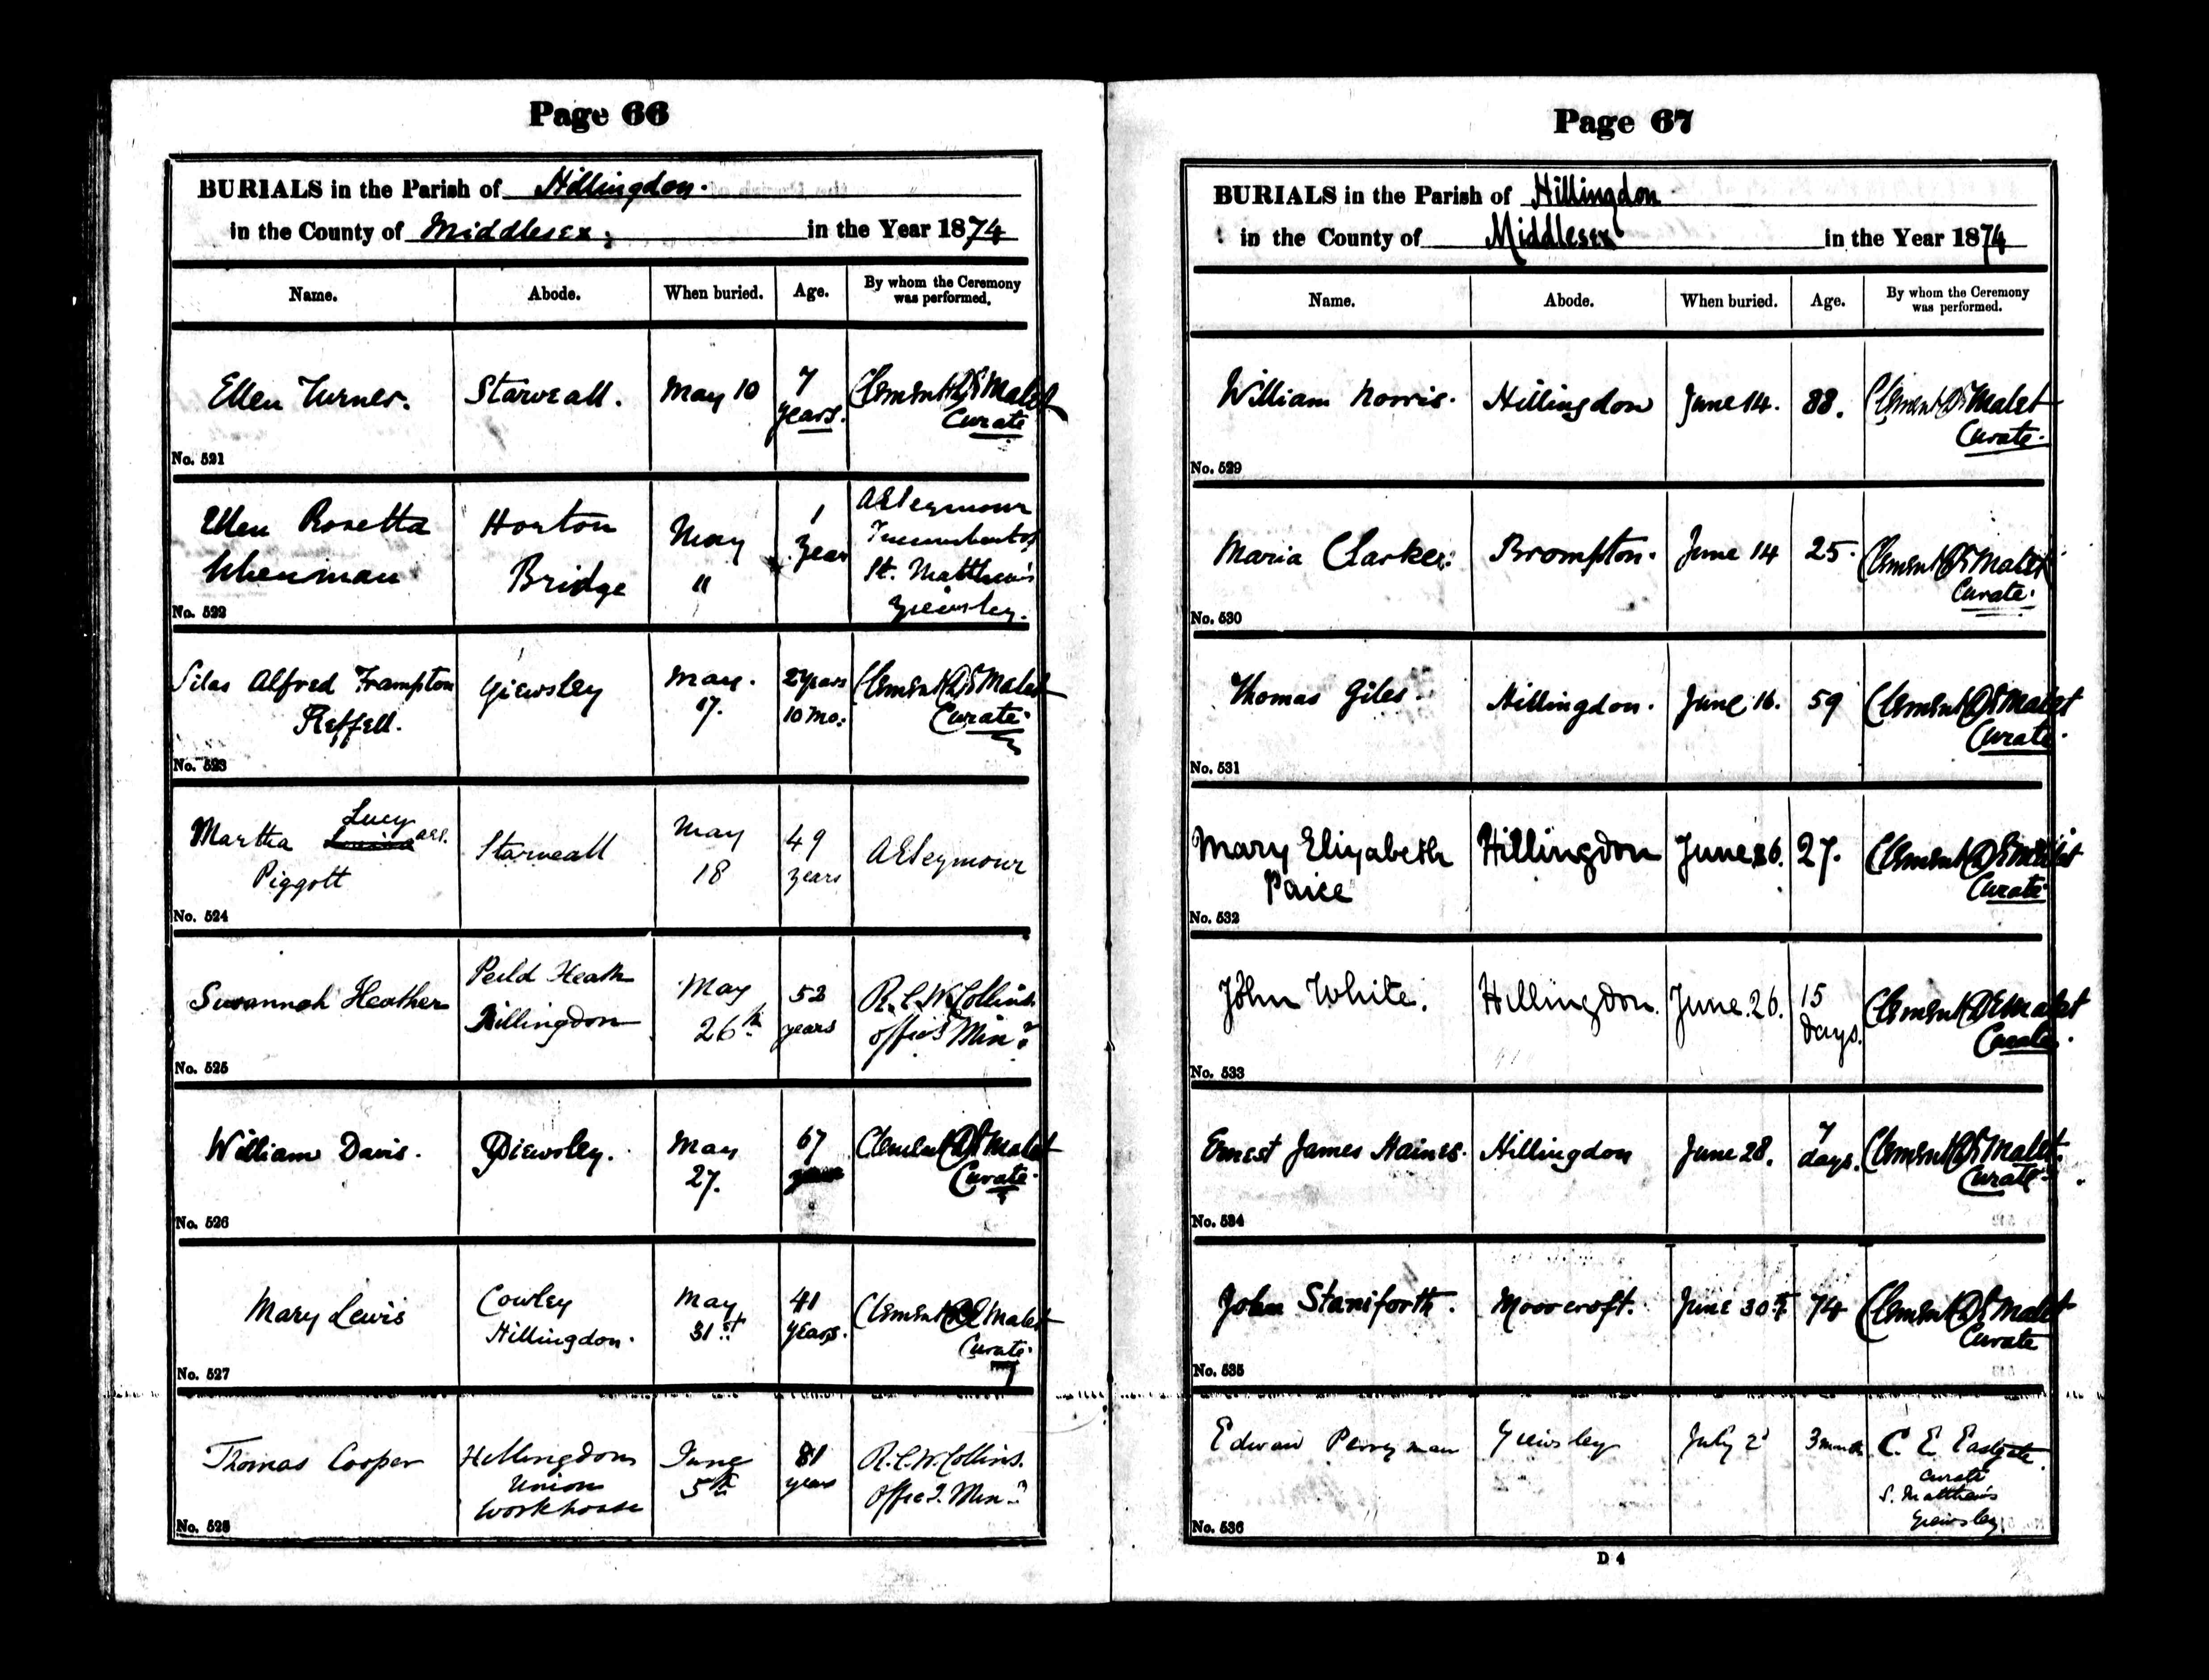 Page 66
BURIALS in the Parish of Hillingdon.
in the County of Middlesex; in the Year 1874
Name. Abode. When buried. Age. By whom the Ceremony was performed.
Ellen Turner. Starveall. May 10 7 years. Clement D E Malet Curate
No. 521
Ellen Rosetta Whenman Horton Bridge May 11 1 year AESeymour Incumbent of St. Matthew's Yiewsley.
No. 522
Silas Alfred Frampton Reffell. Yiewsley May. 17. 2 years 10 mo: Clement D E Malet Curate.
No. 523
Martha Lucy Piggott Starveall May 18 49 years AESeymour
No. 524
Susannah Heather Peild Heath Hillingdon May 26th 52 years R.C.W. Collins Offic Minr
No. 525
William Davis. Yiewsley. May 27. 67 Clement D E Malet Curate.
No. 526
Mary Lewis Cowley Hillingdon. May 31st 41 years. Clement D E Malet Curate.
No. 527
Thomas Cooper Hillingdon Union Workhouse June 5th 81 years R.C.W. Collins. Offic Minr
No. 528
Page 67
BURIALS in the Parish of Hillingdon
in the County of Middlesex in the Year 1874
Name. Abode. When buried. Age. By whom the Ceremony was performed.
William Norris. Hillingdon June 14. 88. Clement D E Malet Curate.
No. 529
Maria Clarke: Brompton. June 14 25. Clement D E Malet Curate.
No. 530
Thomas Giles Hillingdon. June 16. 59 Clement D E Malet Curate.
No. 531
Mary Elizabeth Paice Hillingdon June 26. 27. Clement D E Malet Curate
No. 532
John White. Hillingdon. June 26. 15 days. Clement D E Malet Curate.
No. 533
Ernest James Haines. Hillingdon June 28. 7 days. Clement D E Malet Curate.
No. 534
John Staniforth. Moorcroft. June 30th 74 Clement D E Malet Curate
No. 535
Edward Perryman Yiewsley July 2d 3 month C. E. Eastgate. Curate S. Matthew's Yiewsley
No. 536
D 4